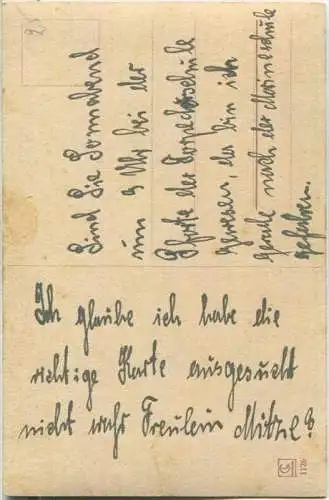 25
Sind Sie Sonnabend
um 9 Uhr bei der
Pforte der Torpedoschule
gewesen, da bin ich
grade nach der Marineschule
gefahren.
Ich glaube ich habe die
richtige Karte ausgesucht
nicht wahr Freulein Mitzel?
G
1126